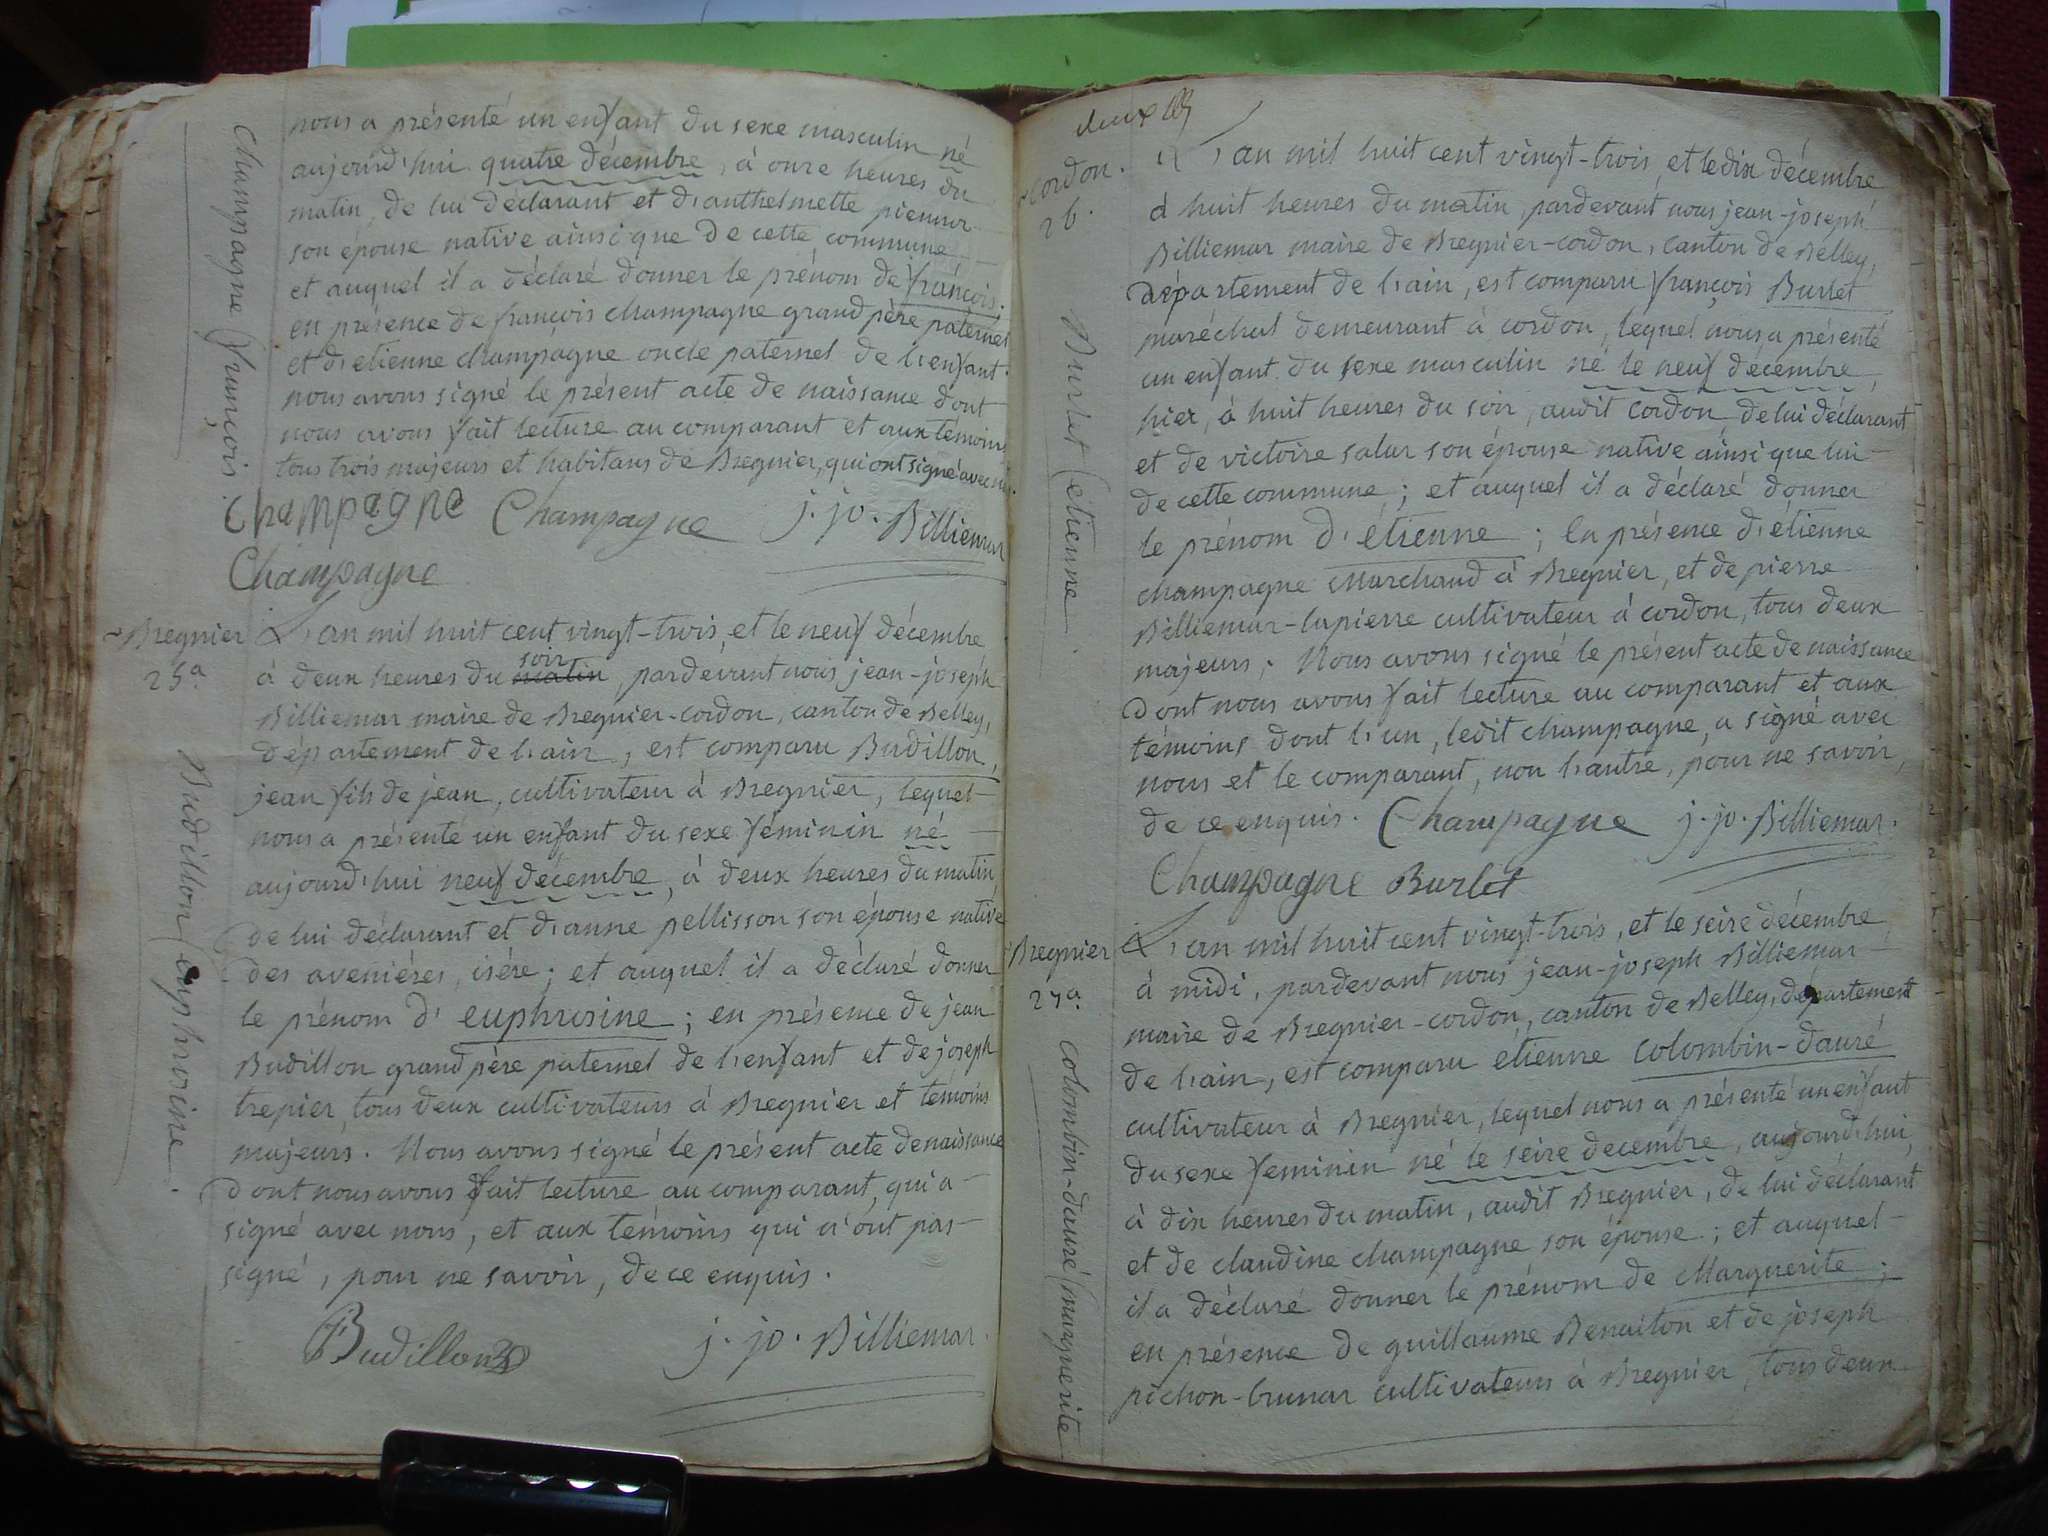 nous a présenté un enfant du sexe masculin né
aujourd'hui quatre décembre, à onze heures du
matin, de lui déclarant et d'anthelmette
son épouse native ainsi que de cette commune
et auquel il a déclaré donner le prénom de françois;
en présence de françois champagne grand père paternel
et d'etienne champagne oncle paternel de l'enfant.
nous avons signé le présent acte de naissance dont
nous avons fait lecture au comparant et aux témoins
tous trois majeurs et habitans de Bregnier, qui ont signé avec
Champagne Champagne j. jo. Billiemar
Champagne
Champagne françois.
Bregnier
25e.
L'an mil huit cent vingt-trois, et le neuf décembre
à deux heures du matin soir, pardevant nous jean-joseph
Billiemar maire de Bregnier-cordon, canton de Belley,
département de l'ain, est comparu Budillon,
jean fils de jean, cultivateur à Bregnier, lequel
nous a présenté un enfant du sexe féminin né
aujourd'hui neuf décembre, à deux heures du matin,
de lui déclarant et d'anne pellisson son épouse native
des aveniéres, isére; et auquel il a déclaré donner
le prénom d'euphrosine; en présence de jean
Budillon grand père paternel de l'enfant et de joseph
trepier, tous deux cultivateurs à Bregnier et témoins
majeurs. Nous avons signé le présent acte de naissance
dont nous avons fait lecture au comparant, qui a
signé avec nous, et aux témoins qui n'ont pas
signé, pour ne savoir, de ce enquis.
Budillon j. jo. Billiemar.
Budillon euphrosine.
deux
cordon.
26.
L'an mil huit cent vingt-trois, et le dix décembre
à huit heures du matin, pardevant nous jean-joseph
Billiemar maire de Bregnier-cordon, canton de Belley,
département de l'ain, est comparu françois Burlet
maréchal demeurant à cordon, lequel nous a présenté
un enfant du sexe masculin né le neuf décembre,
hier, à huit heures du soir, audit cordon, de lui déclarant
et de victoire salar son épouse native ainsi que lui
de cette commune; et auquel il a déclaré donner
le prénom d'étienne; En présence d'étienne
champagne Marchand à Bregnier, et de pierre
Billiemar-lapierre cultivateur à cordon, tous deux
majeurs. Nous avons signé le présent acte de naissance
dont nous avons fait lecture au comparant et aux
témoins dont l'un, ledit champagne, a signé avec
nous et le comparant, non l'autre, pour ne savoir,
de ce enquis. Champagne j. jo. Billiemar.
Champagne Burlet
Burlet etienne.
Bregnier
27e.
L'an mil huit cent vingt-trois, et le seize décembre
à midi, pardevant nous jean-joseph Billiemar
maire de Bregnier-cordon, canton de Belley, département
de l'ain, est comparu etienne colombin-dauré
cultivateur à Bregnier, lequel nous a présenté un enfant
du sexe feminin né le seize decembre, aujourd'hui,
à dix heures du matin, audit Bregnier, de lui déclarant
et de claudine champagne son épouse; et auquel
il a déclaré donner le prénom de Marguerite;
en présence de guillaume Benaiton et de joseph
pichon-brunar cultivateurs à Bregnier, tous deux
colombin-dauré marguerite